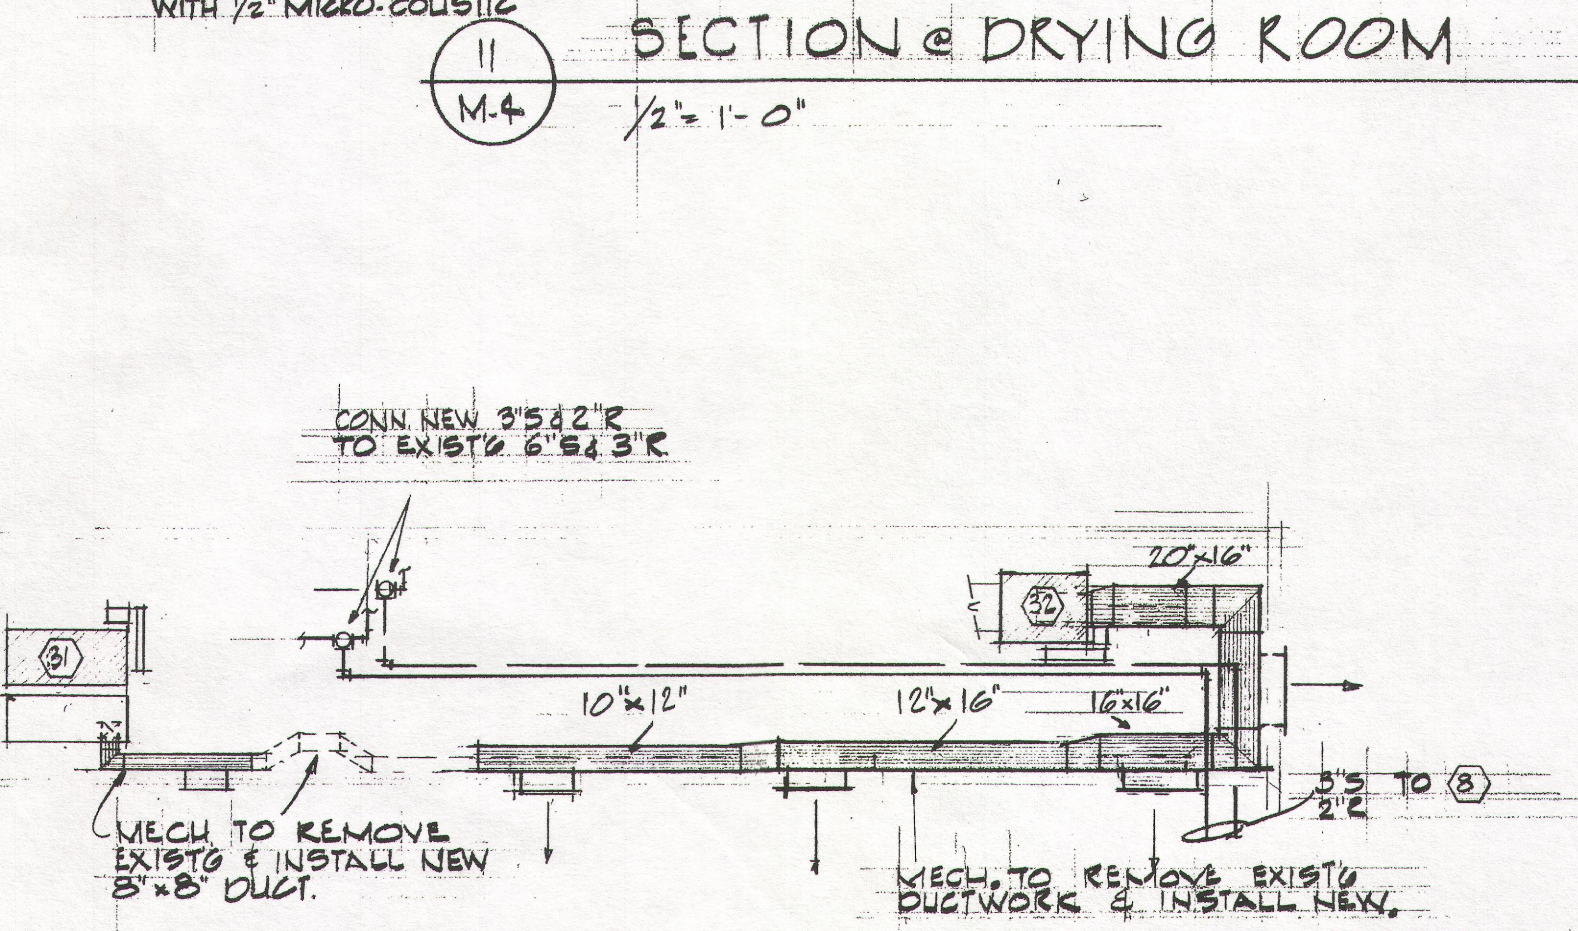 WITH 1/2" MICRO-COUSTIC
11
M-4
SECTION @ DRYING ROOM
1/2" = 1'-0"
CONN. NEW 3"S & 2"R
TO EXIST'G 6"S & 3"R
20"x16"
32
31
10"x12"
12"x16"
16"x16"
3"S TO 8
2"R
MECH. TO REMOVE
EXIST'G & INSTALL NEW
8"x8" DUCT.
MECH. TO REMOVE EXIST'G
DUCTWORK & INSTALL NEW.